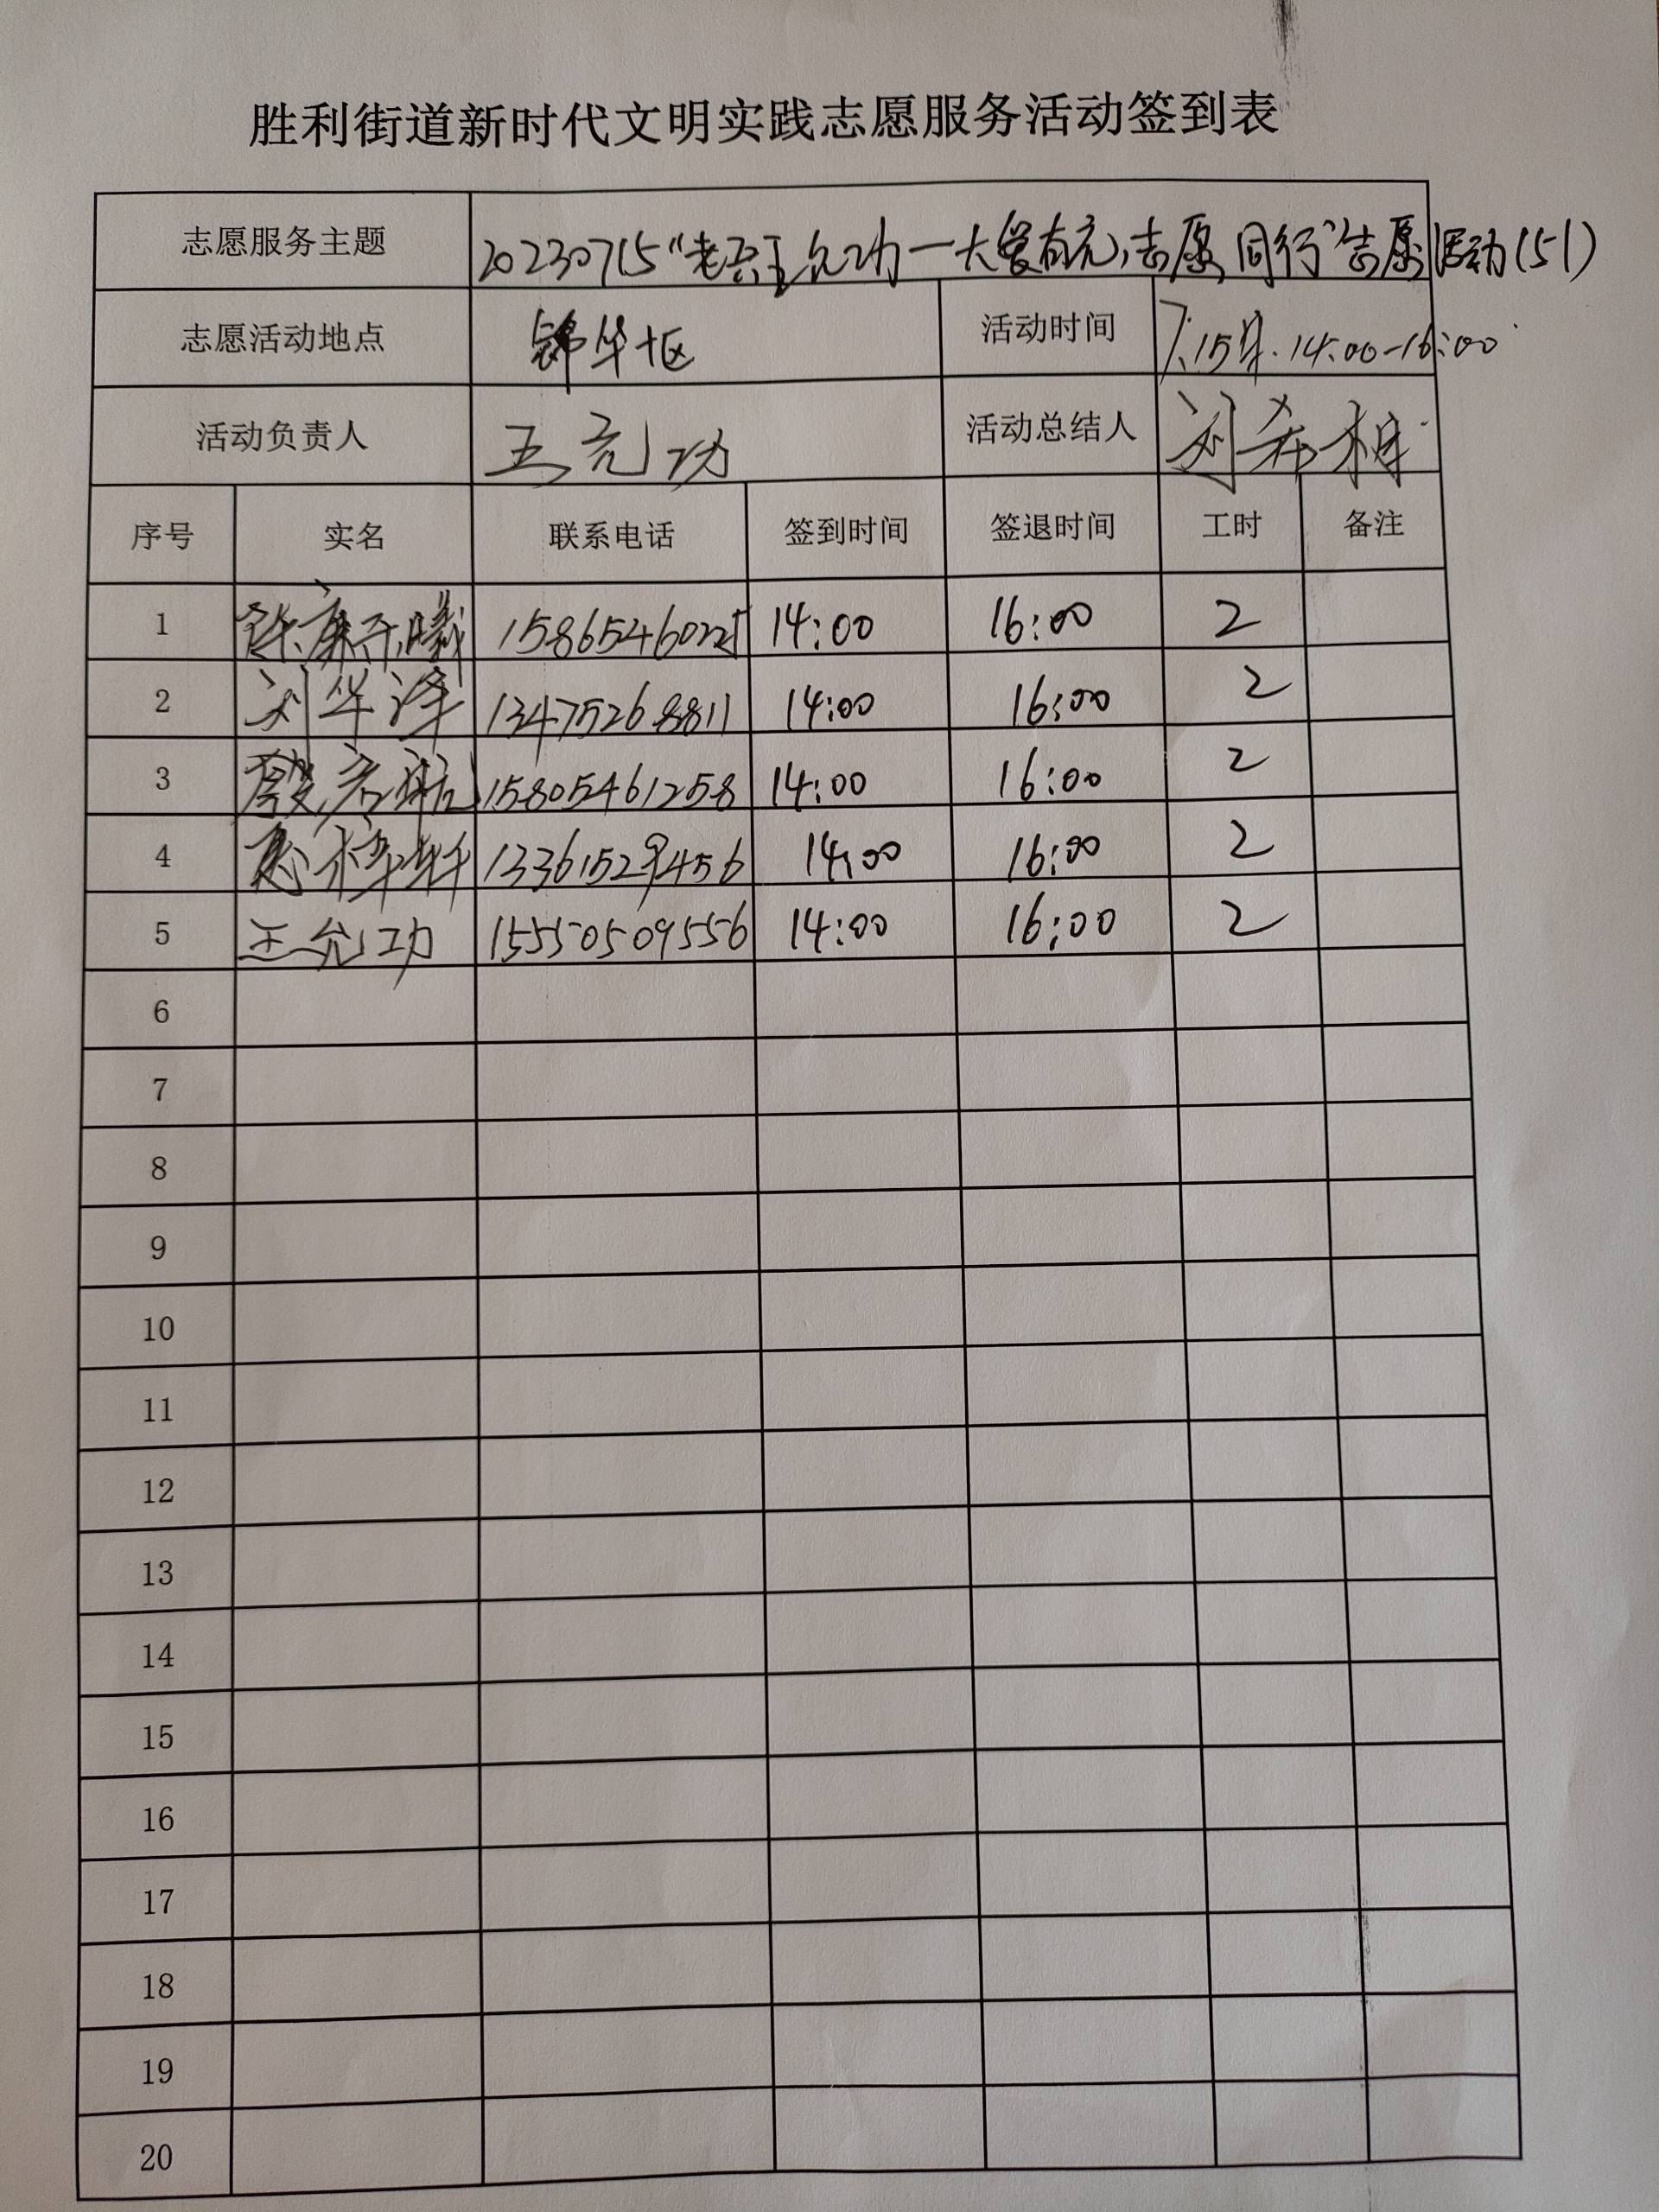 胜利街道新时代文明实践志愿服务活动签到表
志愿服务主题 20230715“老兵王允功一大爱有完,志愿同行”志愿活动(51)
志愿活动地点 锦华 活动时间 7.15日.14:00-16:00
活动负责人 王允功 活动总结人 刘希相
序号 实名 联系电话 签到时间 签退时间 工时 备注
1 14:00 16:00 2
2 刘华泽 13475268811 14:00 16:00 2
3 15805461258 14:00 16:00 2
4 14:00 16:00 2
5 王允功 15550509556 14:00 16:00 2
6
7
8
9
10
11
12
13
14
15
16
17
18
19
20